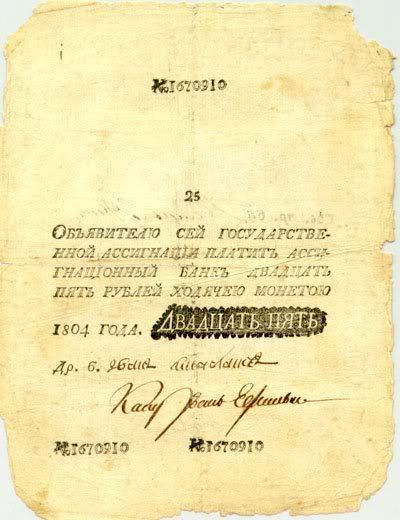 №1670910
25
ОБЪЯВИТЕЛЮ СЕЙ ГОСУДАРСТВЕ-
ННОЙ АССИГНАЦІИ ПЛАТИТЪ АССИ-
ГНАЦІОННЫЙ БАНКЪ ДВАДЦАТЬ
ПЯТЬ РУБЛЕЙ ХОДЯЧЕЮ МОНЕТОЮ
1804 ГОДА. ДВАДЦАТЬ ПЯТЬ
Др. б.
№1670910 №1670910